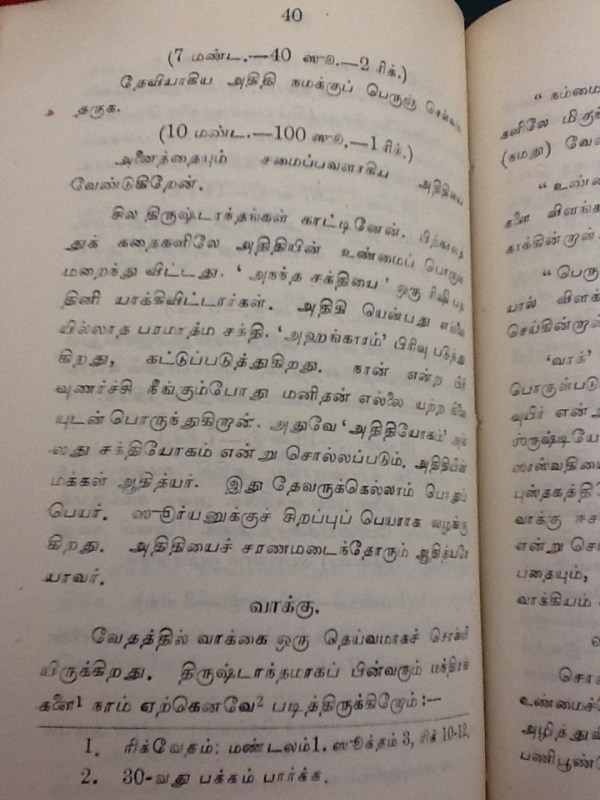 40
(7 மண்ட.—40 ஸூ.—2 ரிக்.)
தேவியாகிய அதிதி நமக்குப் பெருஞ்
தருக.
(10 மண்ட.—100 ஸூ.—1 ரிக்.)
அனைத்தையும் சமைப்பவளாகிய அதிதியை
வேண்டுகிறேன்.
சில திருஷ்டாந்தங்கள் காட்டினேன். பிற்காலத்
துக் கதைகளிலே அதிதியின் உண்மைப் பொருள்
மறைந்து விட்டது. ‘அநந்த சக்தியை’ ஒரு ரிஷி பத்
தினி யாக்கிவிட்டார்கள். அதிதி யென்பது எல்லை
யில்லாத பரமாத்ம சக்தி. ‘அஹங்காரம்’ பிரிவு படுத்து
கிறது, கட்டுப்படுத்துகிறது. நான் என்ற பிரி
வுணர்ச்சி நீங்கும்போது மனிதன் எல்லை யற்ற நிலை
யுடன் பொருந்துகிறான். அதுவே ‘அதிதியோகம்’ அல்
லது சக்தியோகம் என்று சொல்லப்படும். அதிதியின்
மக்கள் ஆதித்யர். இது தேவருக்கெல்லாம் பொதுப்
பெயர். ஸூர்யனுக்குச் சிறப்புப் பெயராக வழங்கு
கிறது. அதிதியைச் சரணமடைந்தோரும் ஆதித்யரே
யாவர்.
வாக்கு.
வேதத்தில் வாக்கை ஒரு தெய்வமாகச் சொல்லி
யிருக்கிறது. திருஷ்டாந்தமாகப் பின்வரும் மந்திரங்
களை¹ நாம் ஏற்கெனவே² படித்திருக்கிறோம்:—
1. ரிக்வேதம்: மண்டலம் 1. ஸூக்தம் 3, ரிக் 10-12.
2. 30-வது பக்கம் பார்க்க.
“ நம்மை
களிலே மிகுந்
(நமது) வே
“ உண்
களை விளங்
தூக்கின்றாள்
“ பெரு
யால் விளக்
செய்கின்றாள்
‘வாக்’
பொருள்பட
வுயிர் என்
ஸ்ருஷ்டியே
ஸரஸ்வதியை
புஸ்தகத்தி
வாக்கு ஈச
என்று சொ
பதையும்,
வாக்கியம்
சொ
உண்மைச்
அழித்துய்
பணிபூண்டு